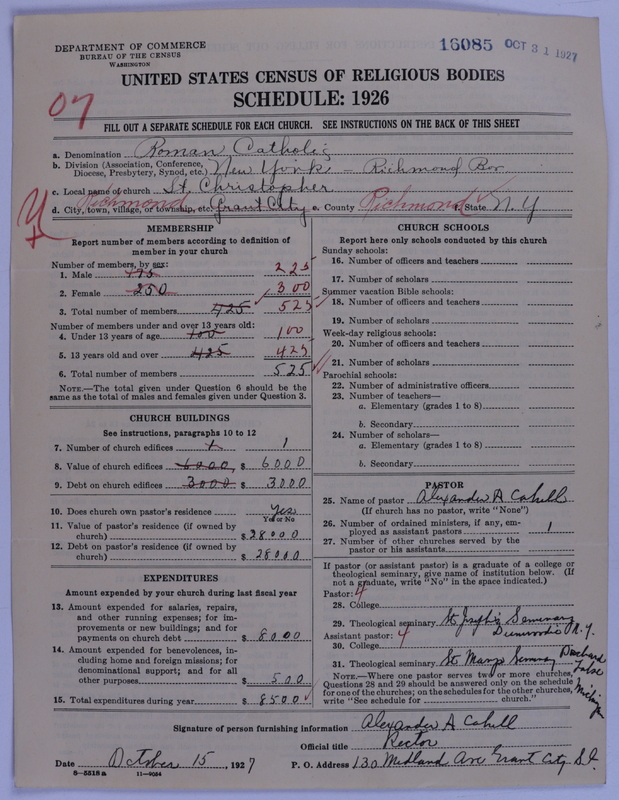 DEPARTMENT OF COMMERCE
BUREAU OF THE CENSUS
WASHINGTON
16085 OCT 31 1927
UNITED STATES CENSUS OF RELIGIOUS BODIES
SCHEDULE: 1926
07
FILL OUT A SEPARATE SCHEDULE FOR EACH CHURCH. SEE INSTRUCTIONS ON THE BACK OF THIS SHEET
a. Denomination Roman Catholic
b. Division (Association, Conference, Diocese, Presbytery, Synod, etc.) New York - Richmond Bor
c. Local name of church St. Christopher
d. City, town, village, or township, etc. Richmond Grant City e. County Richmond f. State N. Y
MEMBERSHIP
Report number of members according to definition of member in your church
Number of members, by sex:
1. Male 175 225
2. Female 250 300
3. Total number of members 425 525
Number of members under and over 13 years old:
4. Under 13 years of age 100 100
5. 13 years old and over 425 425
6. Total number of members 525
NOTE.—The total given under Question 6 should be the same as the total of males and females given under Question 3.
CHURCH BUILDINGS
See instructions, paragraphs 10 to 12
7. Number of church edifices 1 1
8. Value of church edifices 6000 $ 6000
9. Debt on church edifices 3000 $ 3000
10. Does church own pastor's residence Yes
Yes or No
11. Value of pastor's residence (if owned by church) $ 28000
12. Debt on pastor's residence (if owned by church) $ 28000
EXPENDITURES
Amount expended by your church during last fiscal year
13. Amount expended for salaries, repairs, and other running expenses; for improvements or new buildings; and for payments on church debt $ 8000
14. Amount expended for benevolences, including home and foreign missions; for denominational support; and for all other purposes $ 500
15. Total expenditures during year $ 8500
CHURCH SCHOOLS
Report here only schools conducted by this church
Sunday schools:
16. Number of officers and teachers
17. Number of scholars
Summer vacation Bible schools:
18. Number of officers and teachers
19. Number of scholars
Week-day religious schools:
20. Number of officers and teachers
21. Number of scholars
Parochial schools:
22. Number of administrative officers
23. Number of teachers—
a. Elementary (grades 1 to 8)
b. Secondary
24. Number of scholars—
a. Elementary (grades 1 to 8)
b. Secondary
PASTOR
25. Name of pastor Alexander A Cahill
(If church has no pastor, write "None")
26. Number of ordained ministers, if any, employed as assistant pastors 1
27. Number of other churches served by the pastor or his assistants
If pastor (or assistant pastor) is a graduate of a college or theological seminary, give name of institution below. (If not a graduate, write "No" in the space indicated.)
Pastor: 4
28. College
29. Theological seminary St Joseph's Seminary
Dunwoodie N. Y.
Assistant pastor: 4
30. College
31. Theological seminary St Marys Seminary Orchard Lake Michigan
NOTE.—Where one pastor serves two or more churches, Questions 28 and 29 should be answered only on the schedule for one of the churches; on the schedules for the other churches, write "See schedule for church."
Signature of person furnishing information Alexander A Cahill
Official title Rector
Date October 15, 1927 P. O. Address 130 Midland Ave Grant City S.I.
8-5518a 11-9034